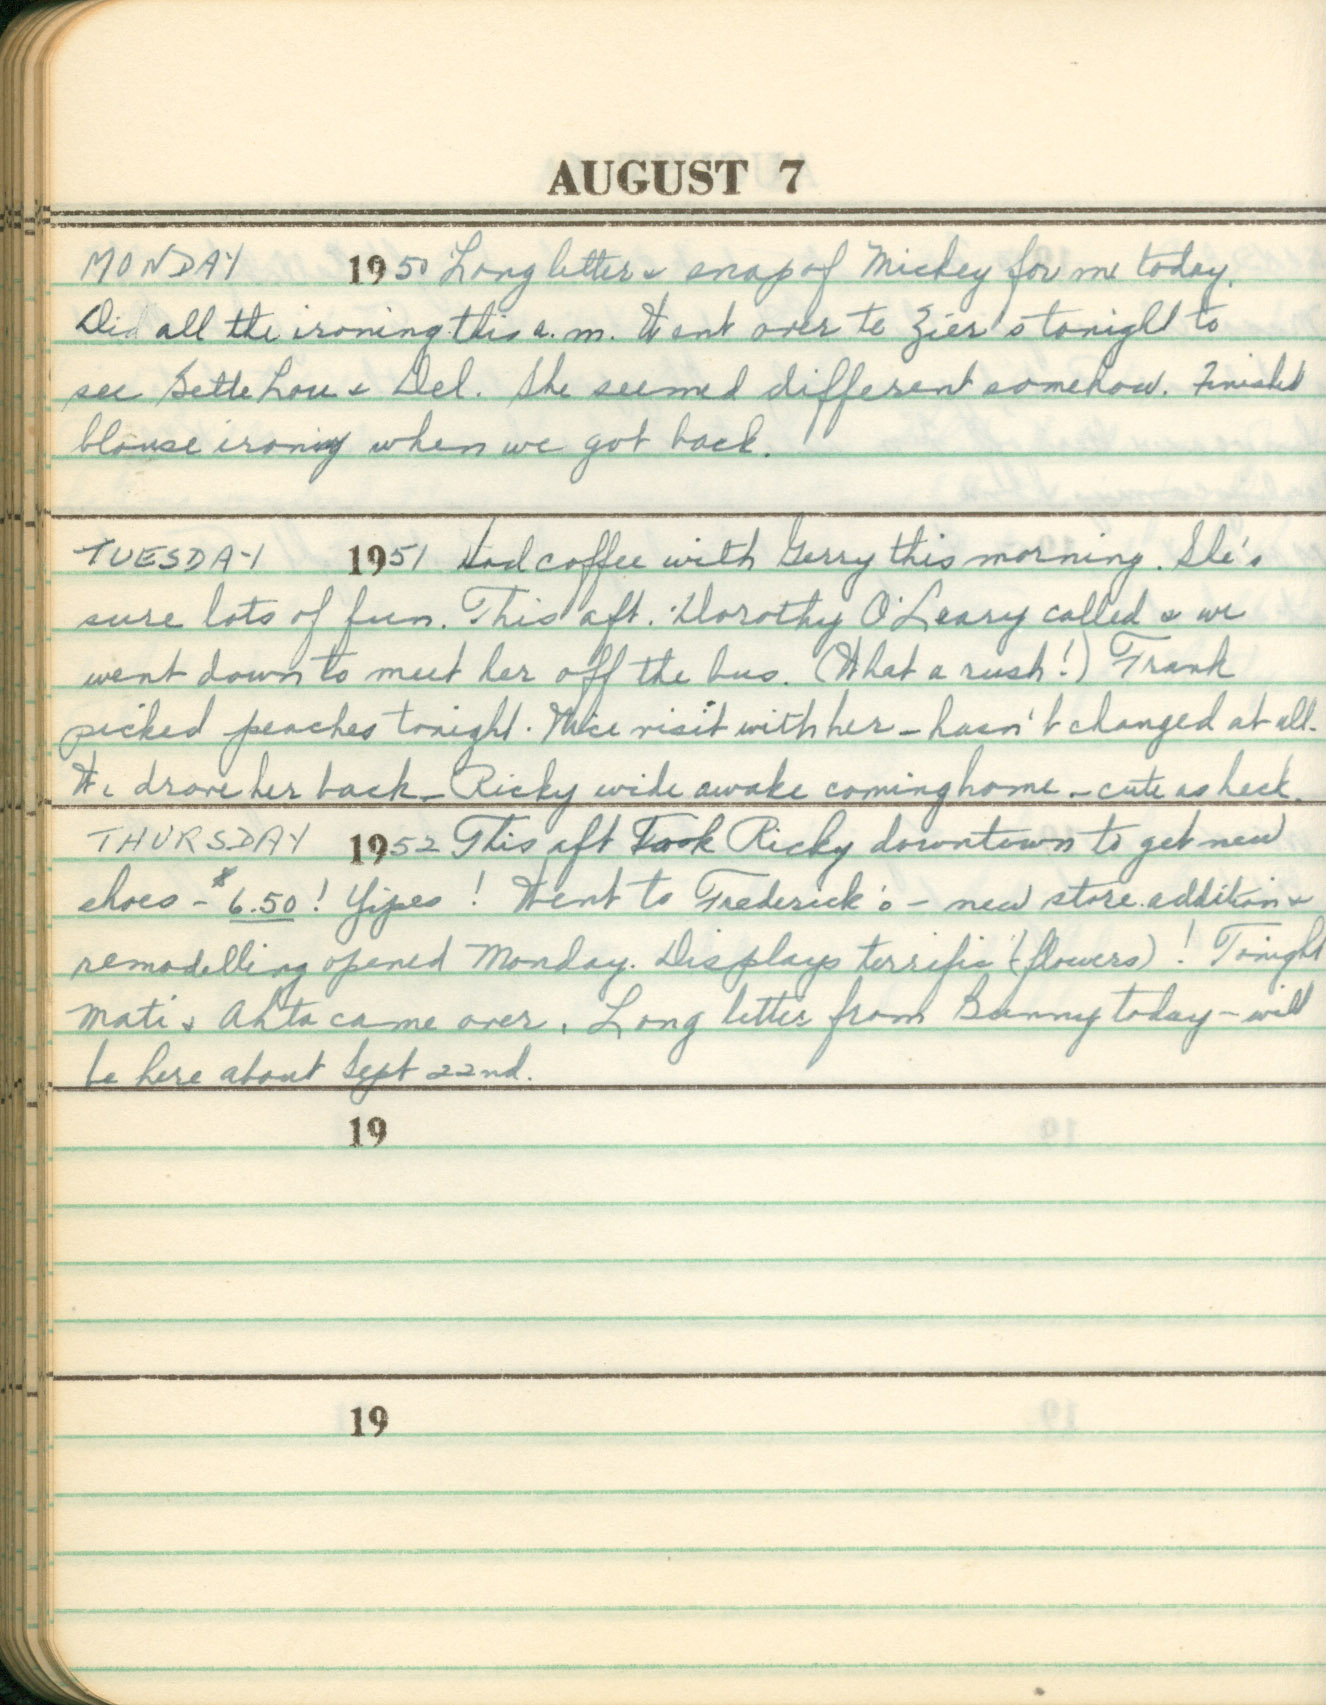 AUGUST 7
MONDAY 1950 Long letter & snap of Mickey for me today.
Did all the ironing this a.m. Went over to Zier's tonight to
see Bette Lou & Del. She seemed different somehow. Finished
blouse ironing when we got back.
TUESDAY 1951 Had coffee with Gerry this morning. She's
sure lots of fun. This aft. Dorothy O'Leary called & we
went down to meet her off the bus. (What a rush!) Frank
picked peaches tonight. Nice visit with her - hasn't changed at all.
We drove her back - Ricky wide awake coming home - cute as heck.
THURSDAY 1952 This aft took Ricky downtown to get new
shoes - $6.50! Yipes! Went to Frederick's - new store addition &
remodelling opened Monday. Displays terrific (flowers)! Tonight
Mati & Ahta came over. Long letter from Bunny today - will
be here about Sept 22nd.
19
19